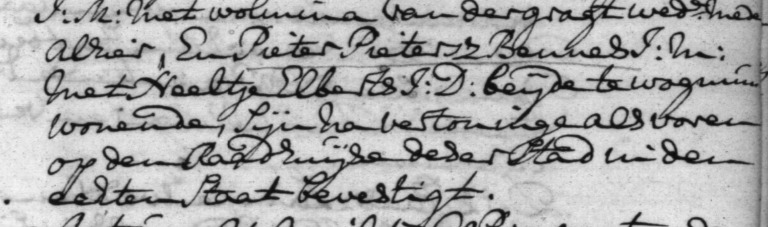 J: M: met wolmina van der gragt wed:e mede
alhier, En Pieter Pietersz Bennes J: M:
met Neeltje Elberts J: D: beijde te wognum
wonende, sijn na vertoninge als voren
op den Raadhuijse deser Stad in den
echten Staat bevestigt.